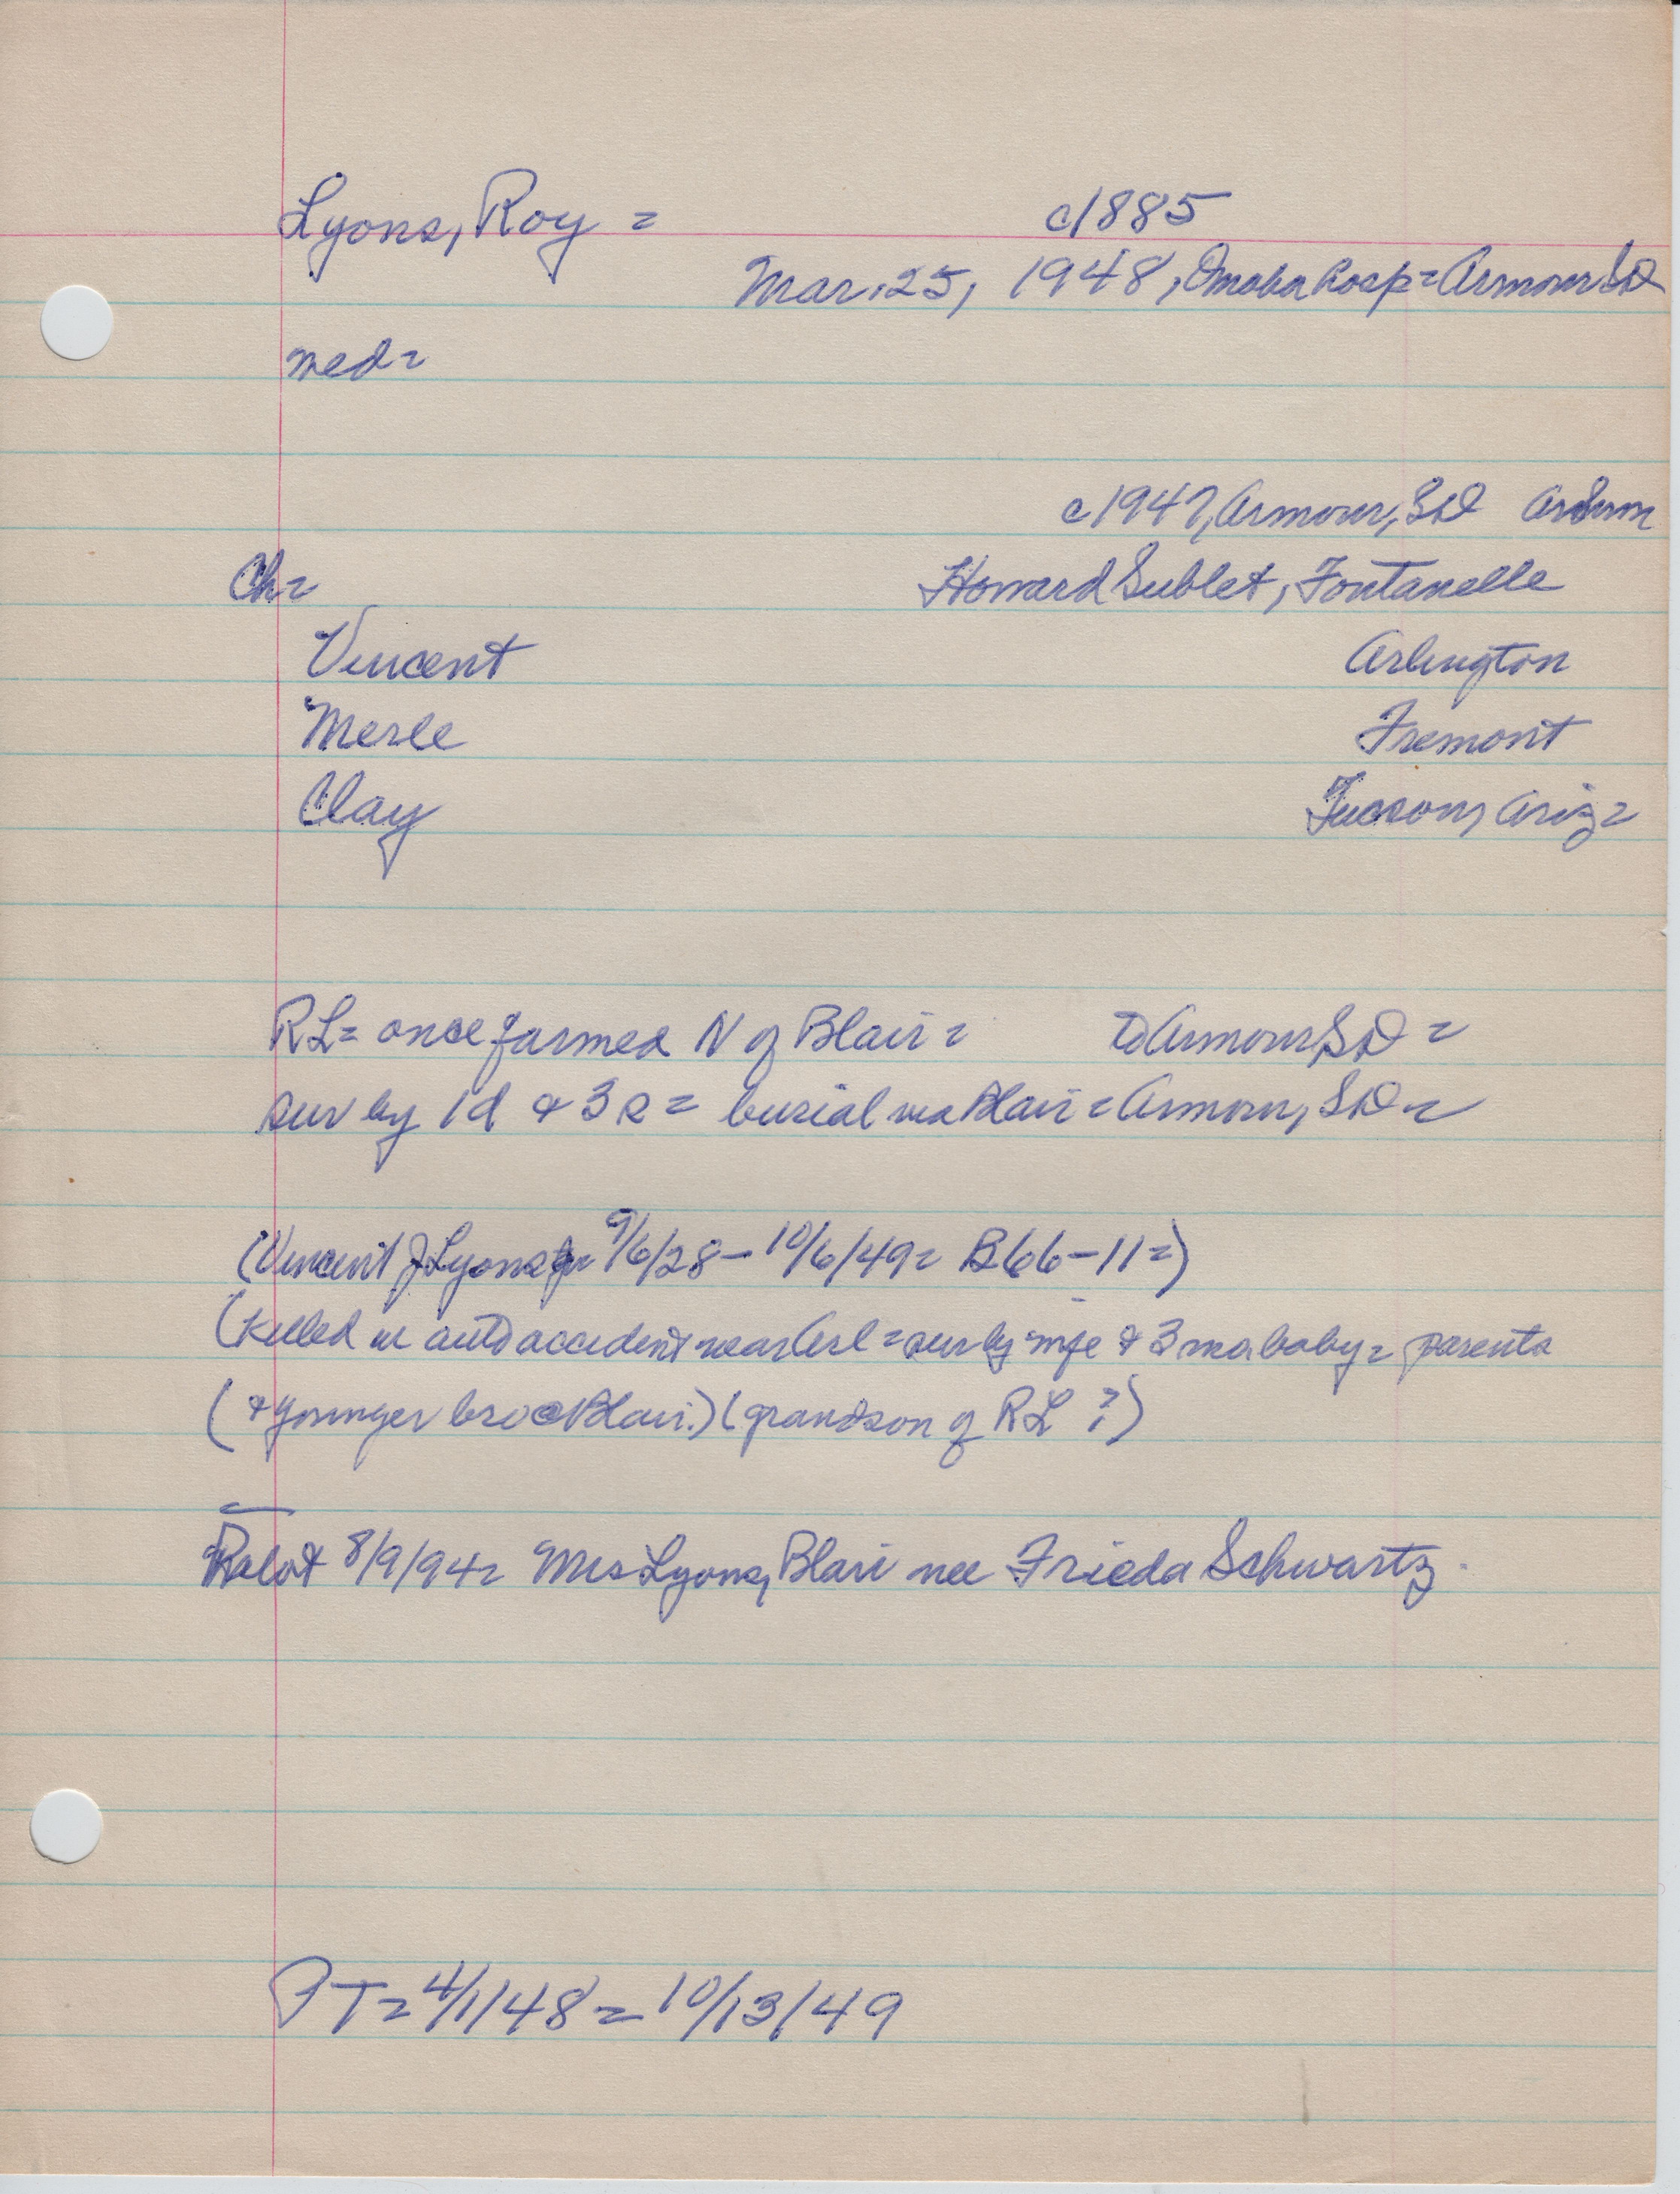 Lyons, Roy = c1885
Mar. 25, 1948, Omaha hosp = Armour SD
wed =
c 1947, Armour, SD
Ch = Howard Sublet, Fontanelle
Vincent Arlington
Merle Fremont
Clay Tucson, Ariz =
RL = once farmed N of Blair = to Armour, SD =
sur by 1d & 3s = burial via Blair = Armour, SD =
(Vincent J Lyons Jr 9/6/28 - 10/6/49 = B66-11 =)
(Killed in auto accident near Arl = sur by wife & 3 mo baby = parents
(& younger bro @ Blair.) (grandson of RL ?)
8/9/94 = Mrs Lyons, Blair nee Frieda Schwartz.
PT = 4/1/48 = 10/13/49